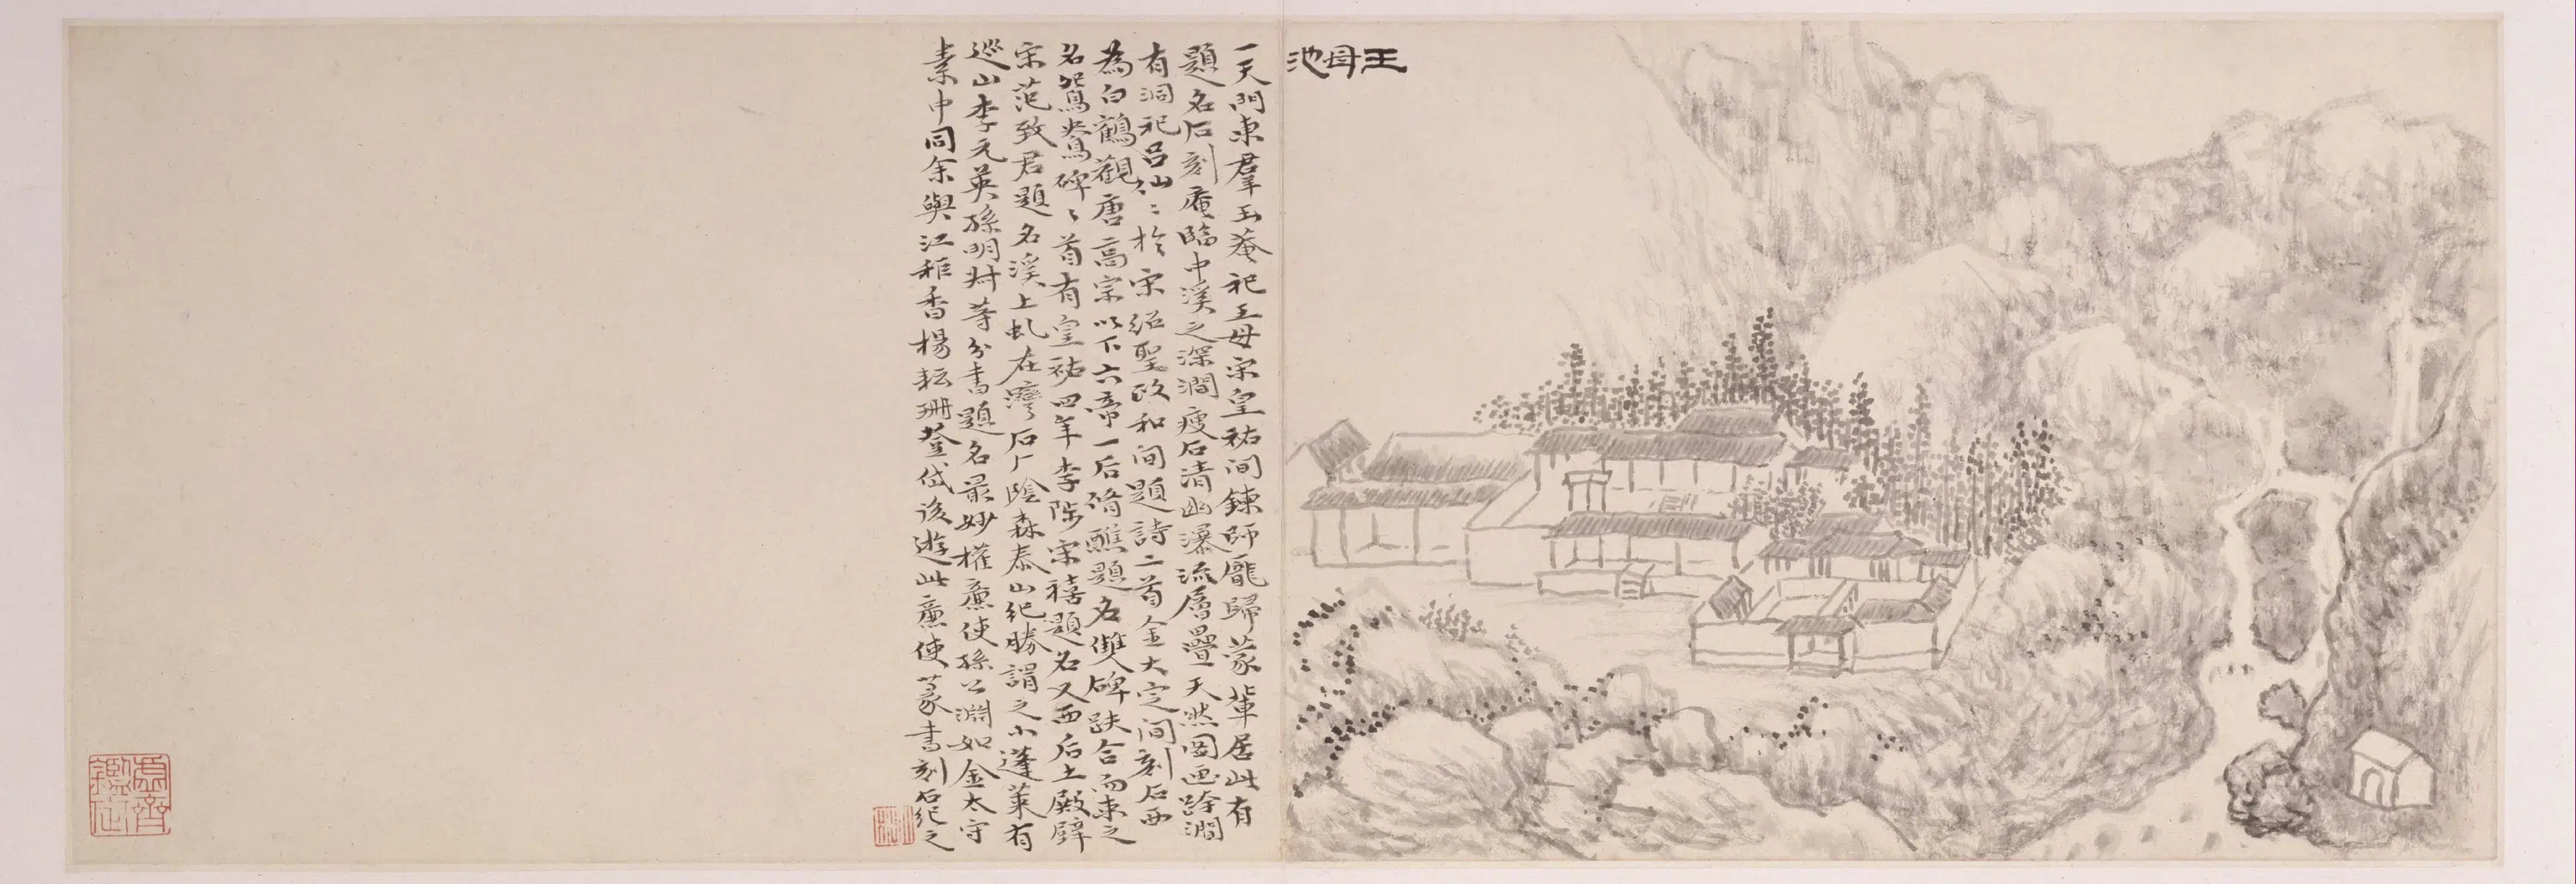 王母池
一天門東羣玉菴祀王母宋皇祐间鍊師龐歸蒙輩居此有
題名石刻庵臨中溪之深澗瘦石清幽瀑流層疊天然図画跨澗
有洞祀吕仙仙於宋紹聖政和间題詩二首金大定间刻石西
為白鶴觀唐高宗以下六帝一后脩醮題名雙碑趺合而束之
名鴛鴦碑碑首有皇祐四年李陟宋禧題名又西后土殿壁
宋范致君題名溪上虬在灣石厂陰森泰山紀勝謂之小蓬萊有
巡山李元英孫明時等分書題名最妙權廉使孫公淵如金太守
素中同余與江稚香楊耘珊登岱後遊此廉使篆書刻石紀之
虛齋鑑定